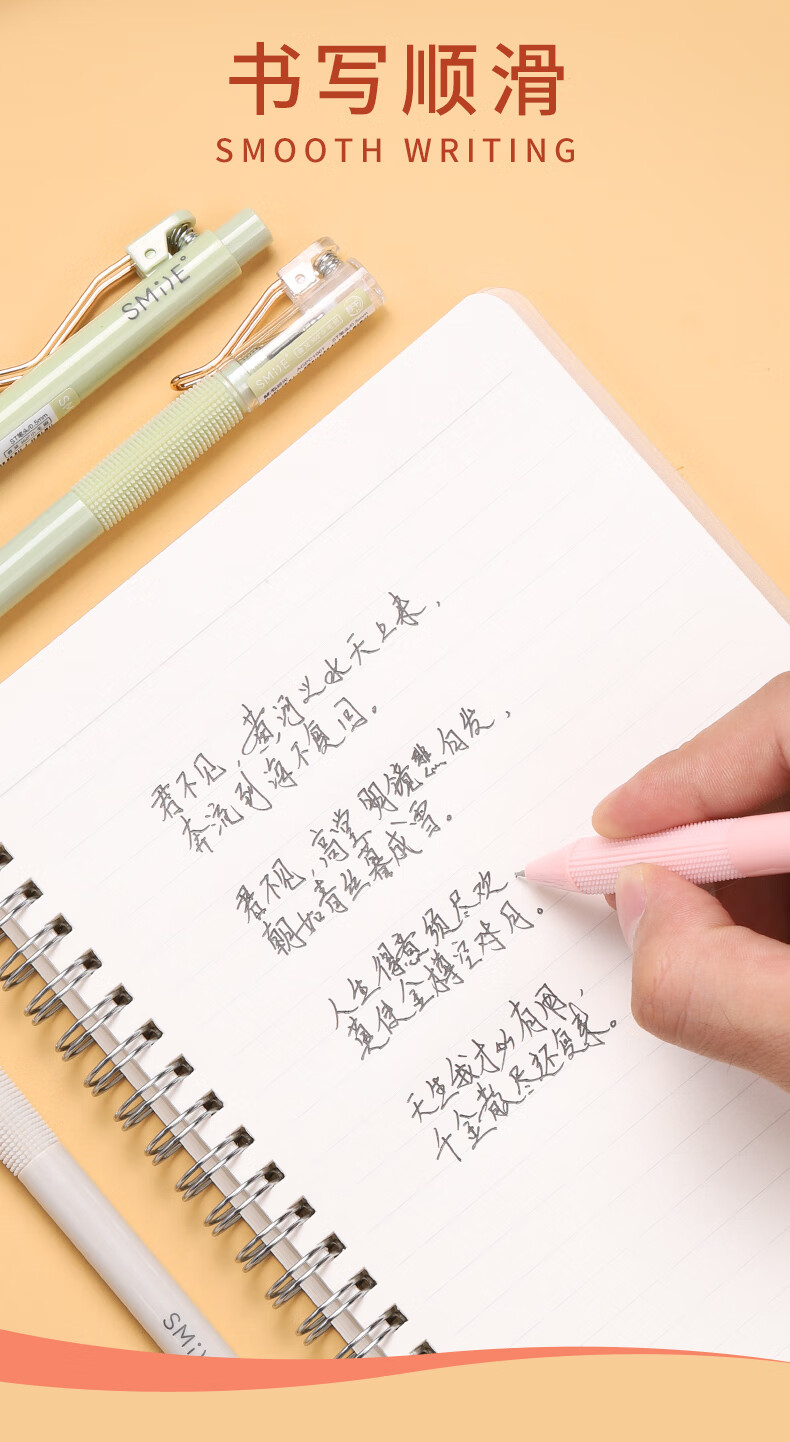 书写顺滑
SMOOTH WRITING
SMilE
SMilE
ST笔头/0.5mm
君不见,黄河之水天上来,
奔流到海不复回。
君不见,高堂明镜悲白发,
朝如青丝暮成雪。
人生得意须尽欢
莫使金樽空对月。
天生我才必有用,
千金散尽还复来。
SMilE